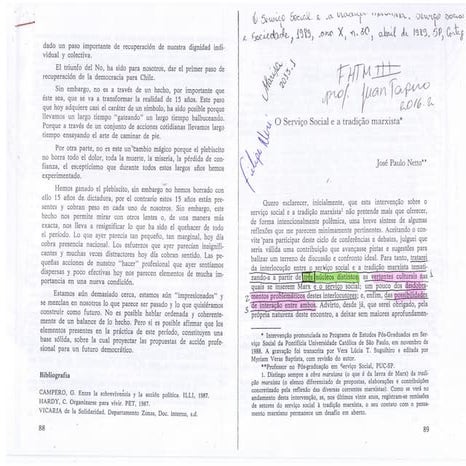 dado un paso importante de recuperación de nuestra dignidad indi-
vidual y colectiva.
El triunfo del No, ha sido para nosotros, dar el primer paso de
recuperación de la democracia para Chile.
Sin embargo, no es a través de un hecho, por importante que
éste sea, que se va a transformar la realidad de 15 años. Este paso
que hoy adquiere casi el carácter de un símbolo, ha sido posible porque
llevamos un largo tiempo "gateando" un largo tiempo balbuceando.
Porque a través de un conjunto de acciones cotidianas llevamos largo
tiempo ensayando el arte de caminar de pie.
Por otra parte, no es este un cambio mágico porque el plebiscito
no borra todo el dolor, toda la muerte, la miseria, la pérdida de con-
fianza, el escepticismo que durante todos estos largos años hemos
experimentado.
Hemos ganado el plebiscito, sin embargo no hemos borrado con
ello 15 años de dictadura, por el contrario estos 15 años están pre-
sentes y cobran peso en cada uno de nosotros. Sin embargo, este
hecho nos permite mirar con otros lentes o, de una manera más
exacta, nos lleva a resignificar lo que ha sido el quehacer de todo
el período. Lo que ayer parecía tan pequeño, tan marginal, hoy día
cobra presencia nacional. Los esfuerzos que ayer parecían insignifi-
cantes y muchas veces distractores hoy día cobran sentido. Las pe-
queñas acciones del que hacer profesional que ayer sentíamos
dispersas y poco efectivas hoy nos parecen elementos de mucha im-
portancia en una nueva condición.
Estamos aún demasiado cerca, estamos aún "impresionados" y
se mezclan en nosotros lo que parece ser pasado y lo que quisiéramos
construir como futuro. No es posible hablar ordenada y coherente-
mente de un balance de lo hecho. Pero sí es posible afirmar que los
elementos presentes en la práctica de este período, constituyen una
base sólida, sobre la cual proyectar las propuestas de acción profe-
sional para un futuro democrático.
Bibliografía
CAMPERO, G. Entre la sobrevivencia y la acción política. ILLI, 1987.
HARDY, C. Organizarse para vivir. PET, 1987.
VICARIA de la Solidaridad. Departamento Zonas, Doc. interno, s.d.
88
O Serviço Social e a tradição marxista. Serviço Social
e Sociedade, 1989, ano X, n. 30, abril de 1989, SP, Cortez
2013.1
FHTM III
prof. Juan
2016.2
O Serviço Social e a tradição marxista*
José Paulo Netto**
Quero esclarecer, inicialmente, que esta intervenção sobre o
serviço social e a tradição marxista¹ não pretende mais que oferecer,
de forma intencionalmente polêmica, uma breve síntese de algumas
reflexões que me parecem minimamente pertinentes. Aceitando o con-
vite para participar deste ciclo de conferências e debates, julguei que
seria válida uma contribuição que avançasse pistas e sugestões para
balizar um terreno de discussão e confronto ideal. Para tanto, tratarei
da interlocução entre o serviço social e a tradição marxista temati-
zando-a a partir de três núcleos distintos: as vertentes culturais nas
quais se inserem Marx e o serviço social; um pouco dos desdobra-
mentos problemáticos destes interlocutores; e, enfim, das possibilidades
de interação entre ambos. Advirto, desde já, que serei obrigado, pela
própria natureza deste encontro, a deixar sem maiores aprofundamen-
* Intervenção pronunciada no Programa de Estudos Pós-Graduados em Ser-
viço Social da Pontifícia Universidade Católica de São Paulo, em novembro de
1988. A gravação foi transcrita por Vera Lúcia T. Suguihiro e editada por
Myrian Veras Baptista, com revisão do autor.
**Professor no Pós-Graduação em Serviço Social, PUC-SP.
1. Distingo sempre a obra marxiana (o que é da lavra de Marx) da tradição
marxista (o elenco diferenciado de propostas, elaborações e contribuições
concretizado pela reflexão das diversas correntes marxistas). O leitor observará
que, se, nos últimos vinte anos, registram-se remissões
de setores do serviço social à tradição marxista, o seu contato com o pensa-
mento marxiano permanece um desafio em aberto.
89